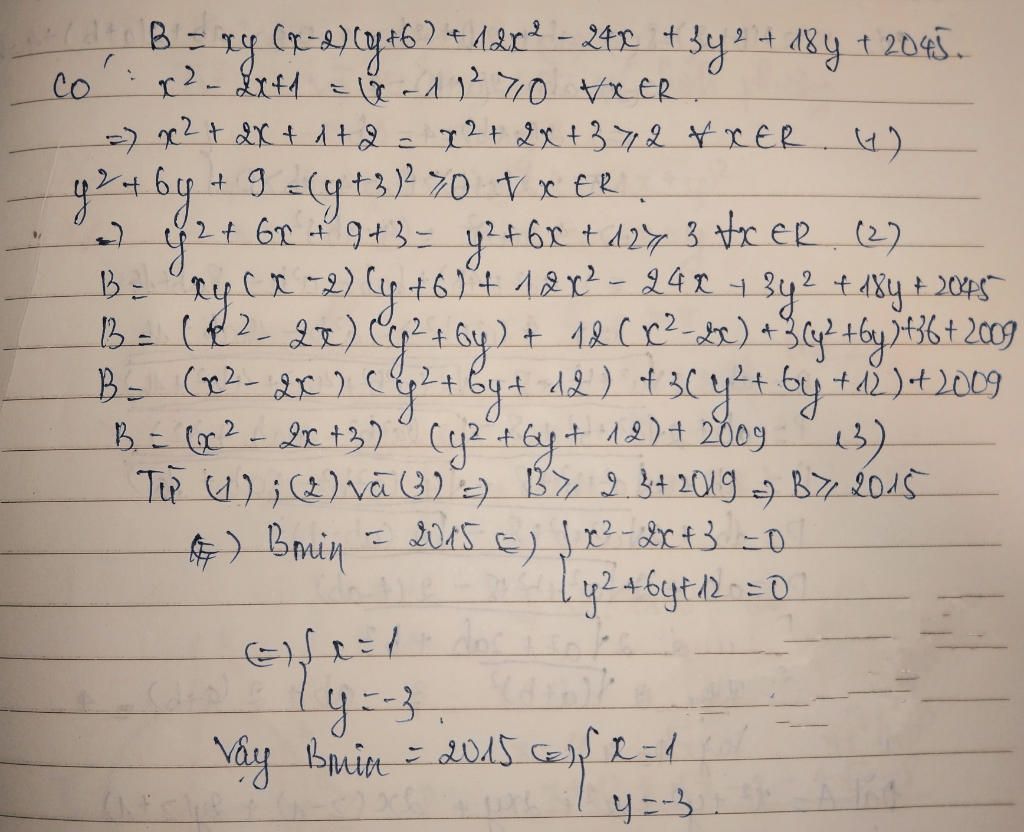 B = xy (x-2)(y+6) + 12x² - 24x + 3y² + 18y + 2045.
Có : x² - 2x+1 = (x-1)² ⩾0 ∀x ∈R.
=> x² + 2x + 1+2 = x² + 2x+3 ⩾ 2 ∀ x ∈R. (1)
y² + 6y + 9 = (y+3)² ⩾0 ∀ x ∈R.
=> y² + 6x + 9+3 = y² + 6x + 12 ⩾ 3 ∀x ∈R. (2)
B = xy (x-2)(y+6) + 12x² - 24x + 3y² + 18y + 2045
B = (x² - 2x)(y² + 6y) + 12(x² - 2x) + 3(y² + 6y) + 36 + 2009
B = (x² - 2x) (y² + 6y + 12) + 3(y² + 6y + 12) + 2009
B = (x² - 2x+3) (y² + 6y + 12) + 2009 (3)
Từ (1) ; (2) và (3) => B⩾ 2.3 + 2019 => B⩾ 2015
Bmin = 2015 <=> { x² - 2x+3 = 0
y² + 6y+12 = 0
<=> { x = 1
y = -3.
Vậy Bmin = 2015 <=> { x = 1
y = -3.